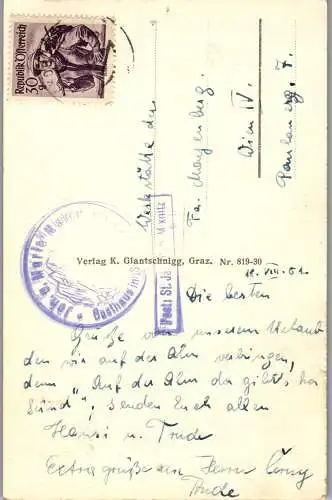 Republik Österreich
30 g
Werkstätte der
Fa. Mayenberg.
Wien IV.
Paulanerg. 7.
Verlag K. Glantschnigg, Graz. Nr. 819-30
Joh. u. Marie
Gasthaus
Post: St. Ja
Die besten
Grüße von unserem Urlaub
den wir auf der Alm verbringen,
denn "Auf der Alm da gibt's ka
Sünd", senden Euch allen
Hansi u. Trude
Extra grüße an Herrn
Trude